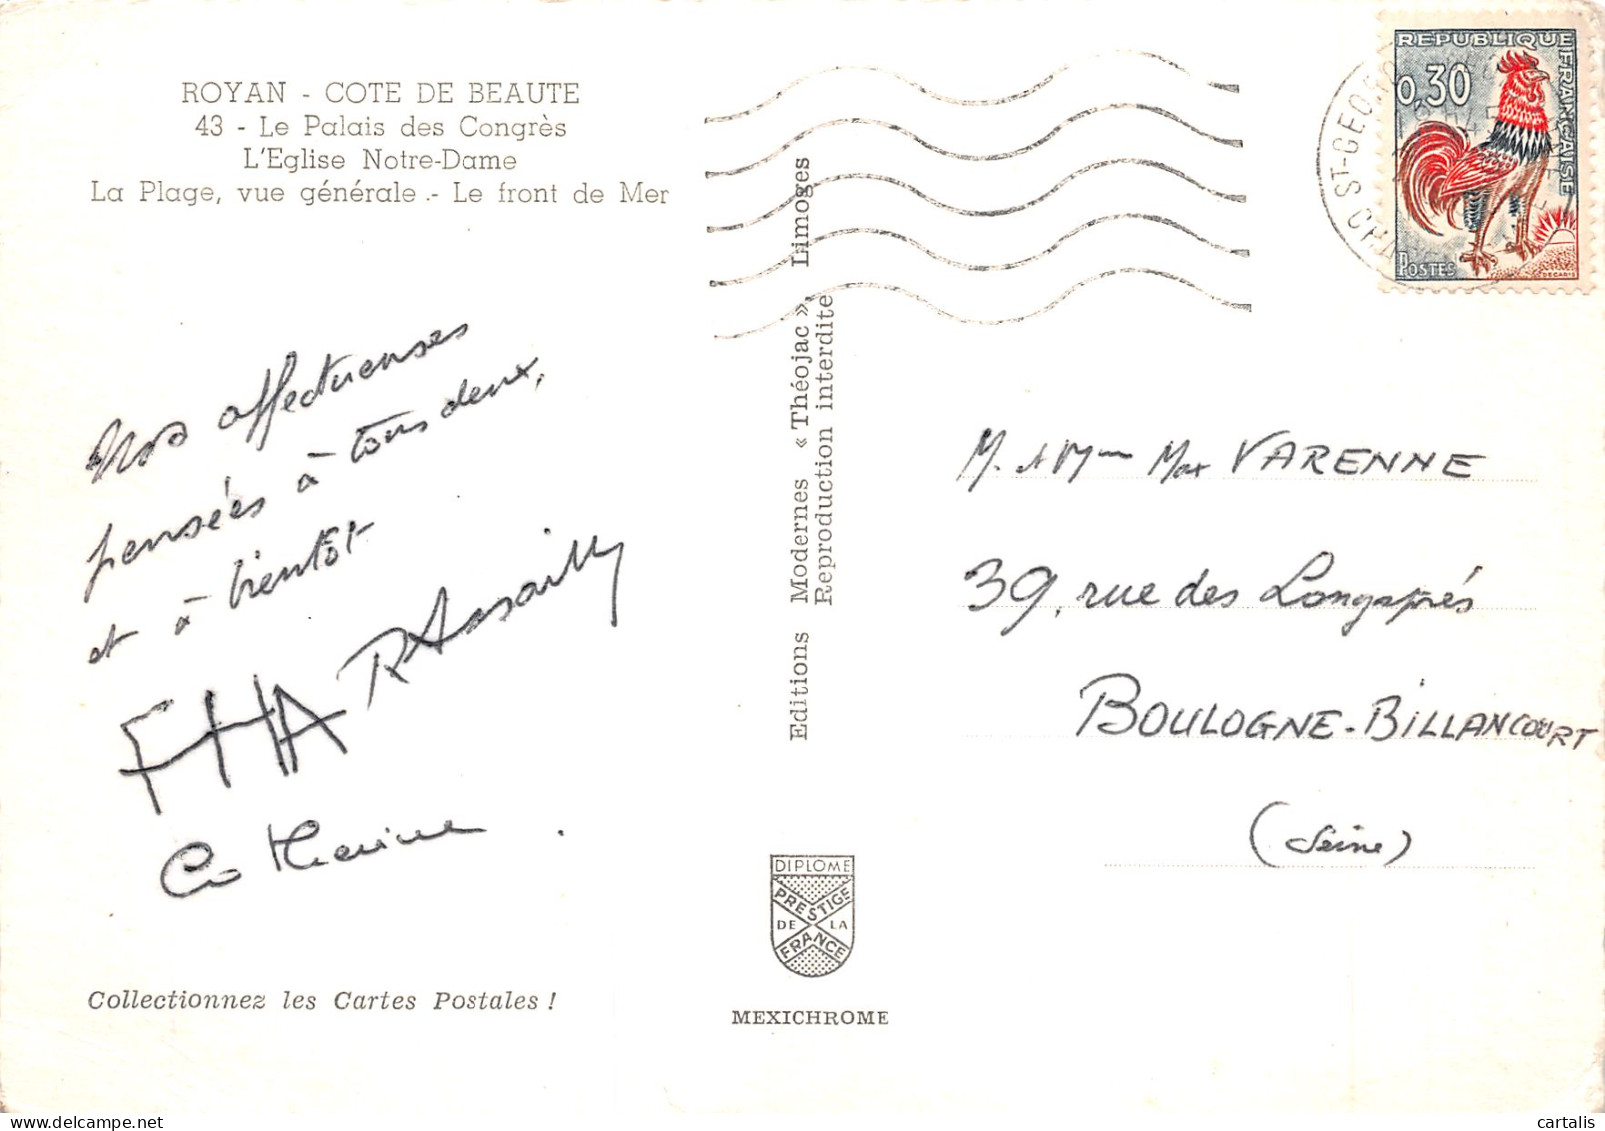 ROYAN - COTE DE BEAUTE
43 - Le Palais des Congrès
L'Eglise Notre-Dame
La Plage, vue générale.- Le front de Mer
Nos affectueuses
pensées à tous deux,
et à bientôt
Catherine
Collectionnez les Cartes Postales !
Editions Modernes « Théojac », Limoges
Reproduction interdite
DIPLOME
PRESTIGE
DE LA
FRANCE
MEXICHROME
REPUBLIQUE FRANCAISE
0,30
POSTES
DECARIS
ST-GEORG
M. & Mme Max VARENNE
39, rue des Longsprés
BOULOGNE-BILLANCOURT
(Seine)
cartalis